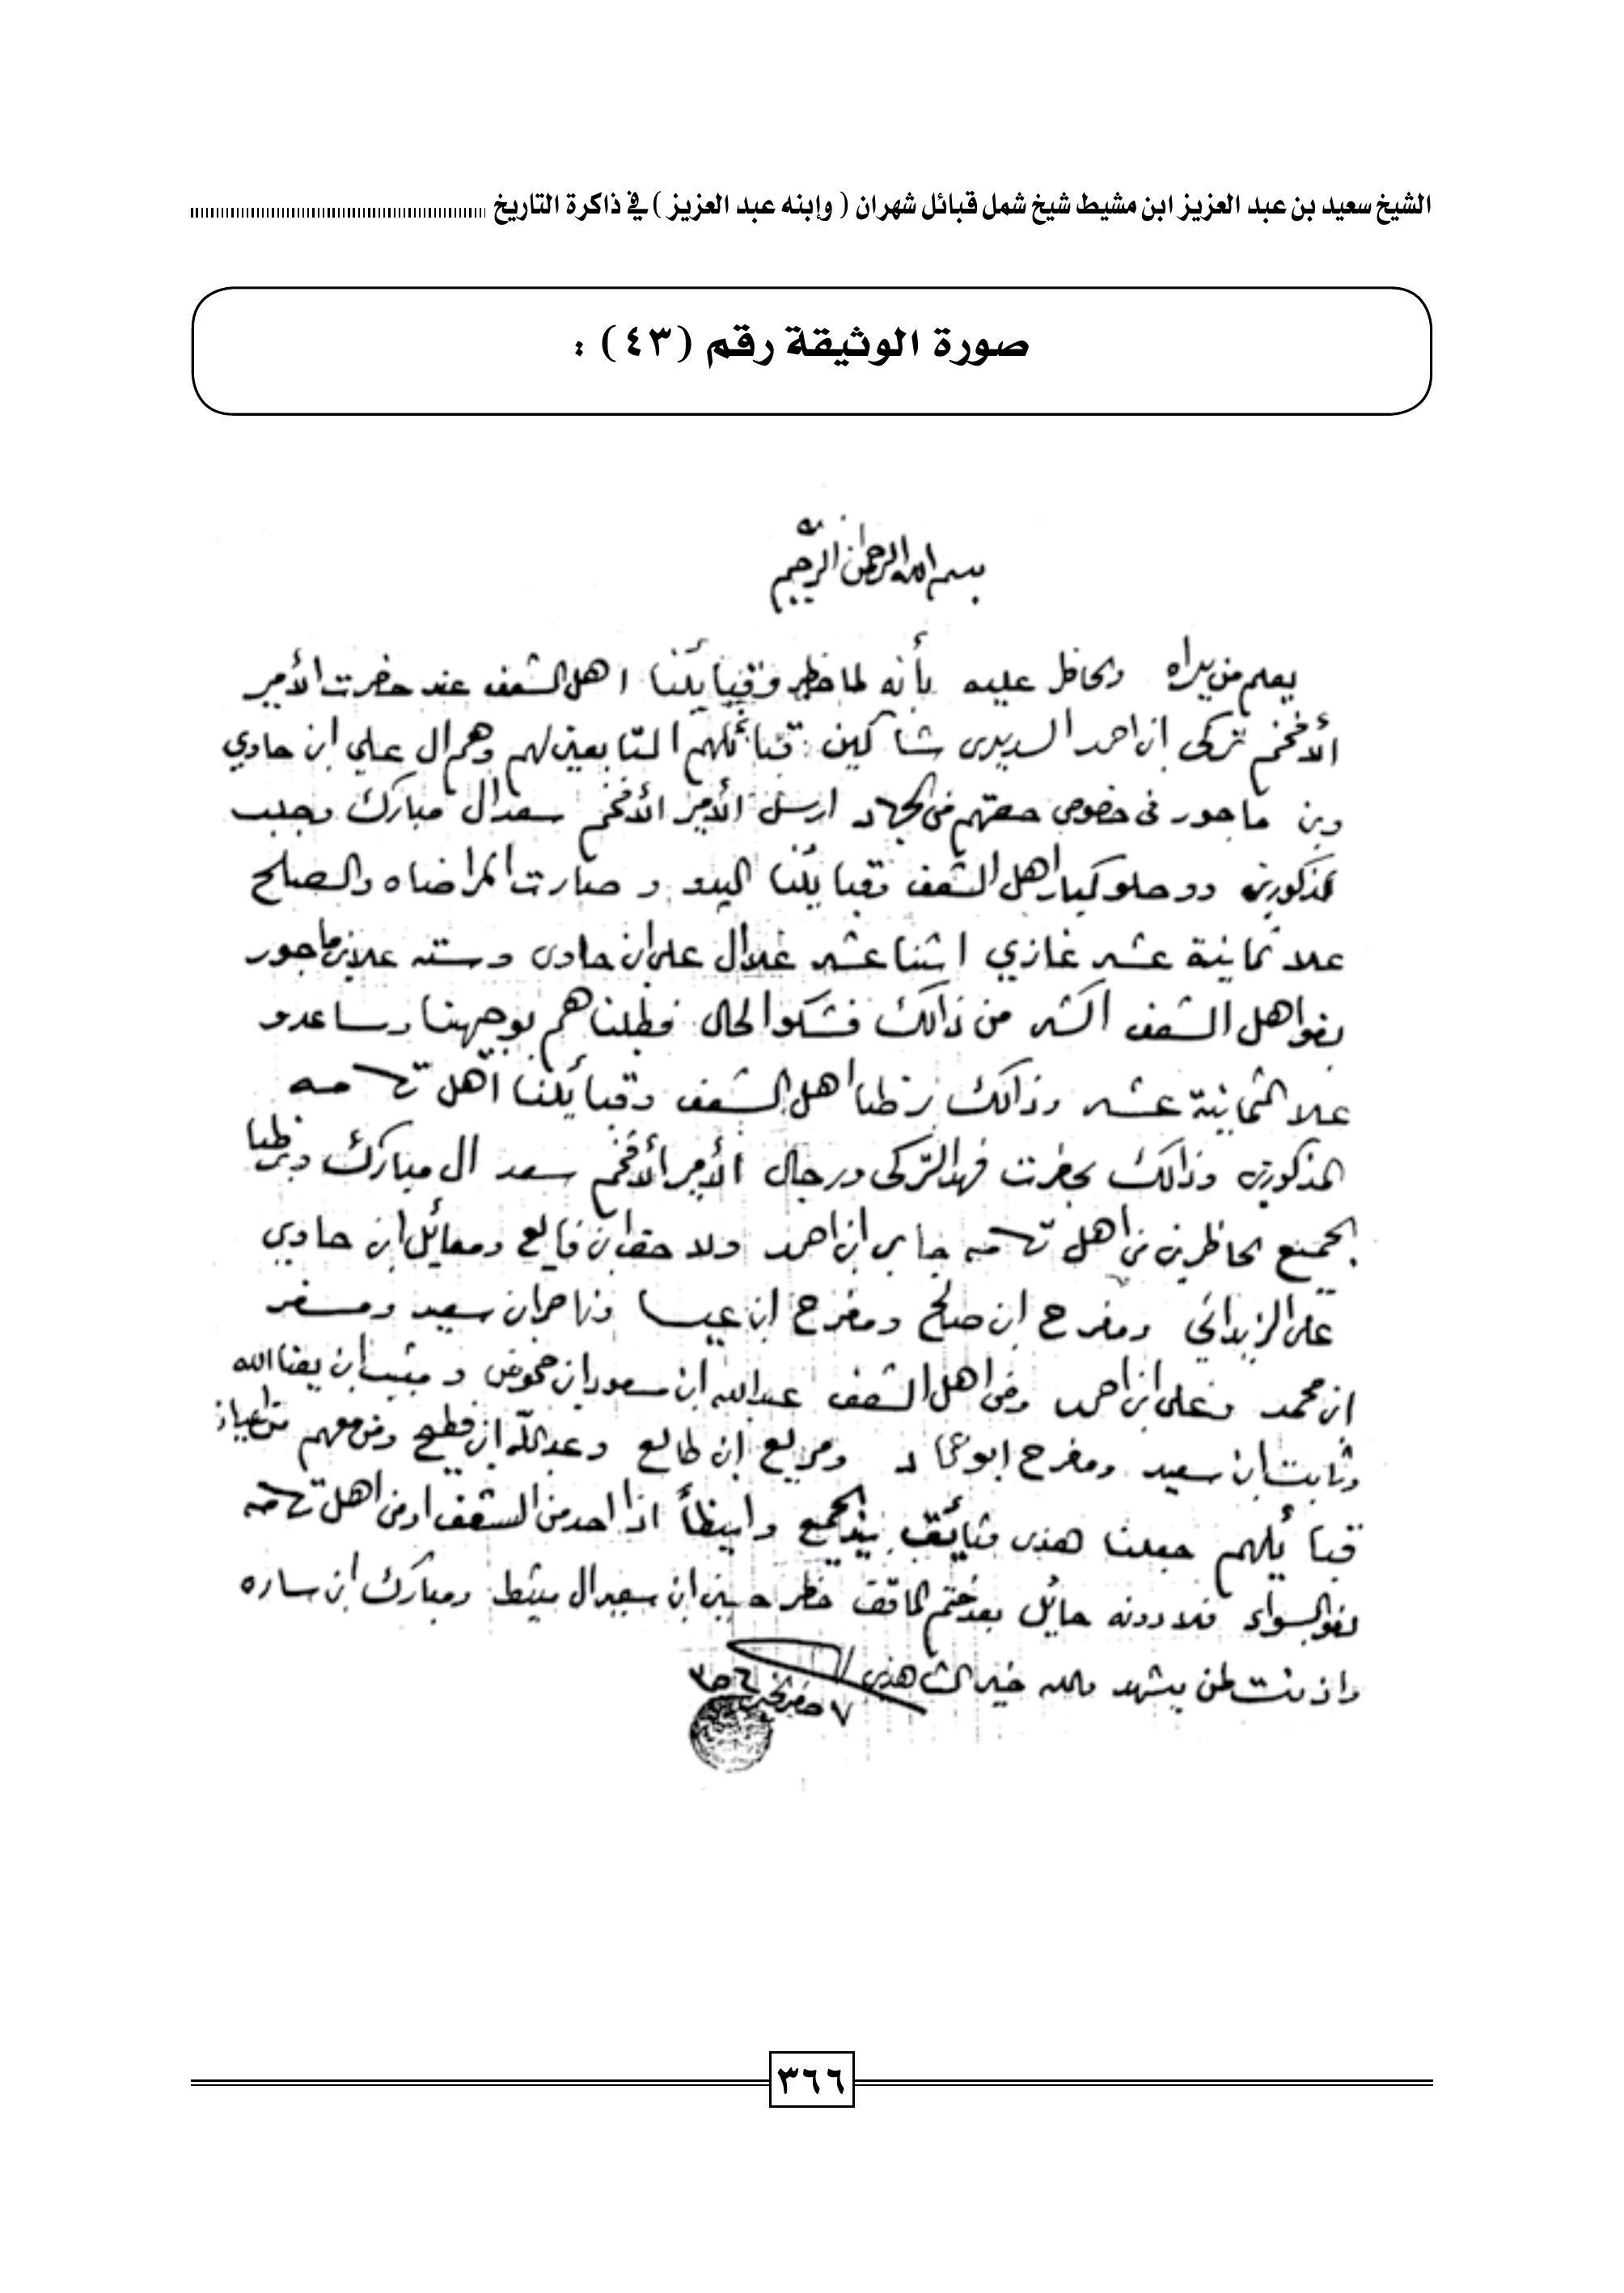 الشيخ سعيد بن عبد العزيز ابن مشيط شيخ شمل قبائل شهران ( وإبنه عبد العزيز ) في ذاكرة التاريخ
صورة الوثيقة رقم (٤٣) :
بسم الله الرحمن الرحيم
يعلم من يراه وكافل عليه بأنه لما خظر وقبايئلنا اهل الشعف عند حضرت الأمير
الأفخم تركي ابن احمد السديري شاكين قبائلهم التابعين لهم وهم ال علي ابن حاوي
وبن ماجور في خصوص حقتهم من الجهاد ارسل الأمير الأفخم سعد ال مبارك وجلب
المذكورين ووصلو كبار اهل الشعف وقبايلنا البدو و صارت المراضاه والصلح
علا ثمانية عشر غازي اثنا عشر علا ال علي ابن حاوي وسته علا بن ماجور
بغو اهل الشعف اكثر من ذالك فشكو الحال فطلبناهم بوجيهنا وساعدو
علا الثمانية عشر وذالك برظا اهل الشعف وقبايلنا اهل تهامه
المذكورين وذالك بحظرت فهد التركي ورجال الأمير الأفخم سعد ال مبارك وبرظا
الجميع الحاظرين من اهل تهامه جابر ابن احمد ولاحق ابن فالع ومعائل ابن حاوي
علي الزيداني ومفرح ابن صالح ومفرح ابن عيسا وناصر ابن سعيد ومسفر
ابن محمد وعلي ابن احمد ومن اهل الشعف عبدالله ابن مسعود ابن محوض و مثيب ابن
وثابت ابن سعيد ومفرح ابو ومريع ابن طالع وعبدالله ابن فطيح ومن معهم من اعيان
قبائلهم جعلنا هذي وثائق بيد الجميع وايظاً اذا احد من الشعف او من اهل تهامه
بغو السواء فلا دونه حايل بعد ختم الماقف حظر حسين ابن سعيد ال مشيط ومبارك ابن ساره
واذنت لمن يشهد والله خير الشاهدين
٧ صفر
٣٦٦